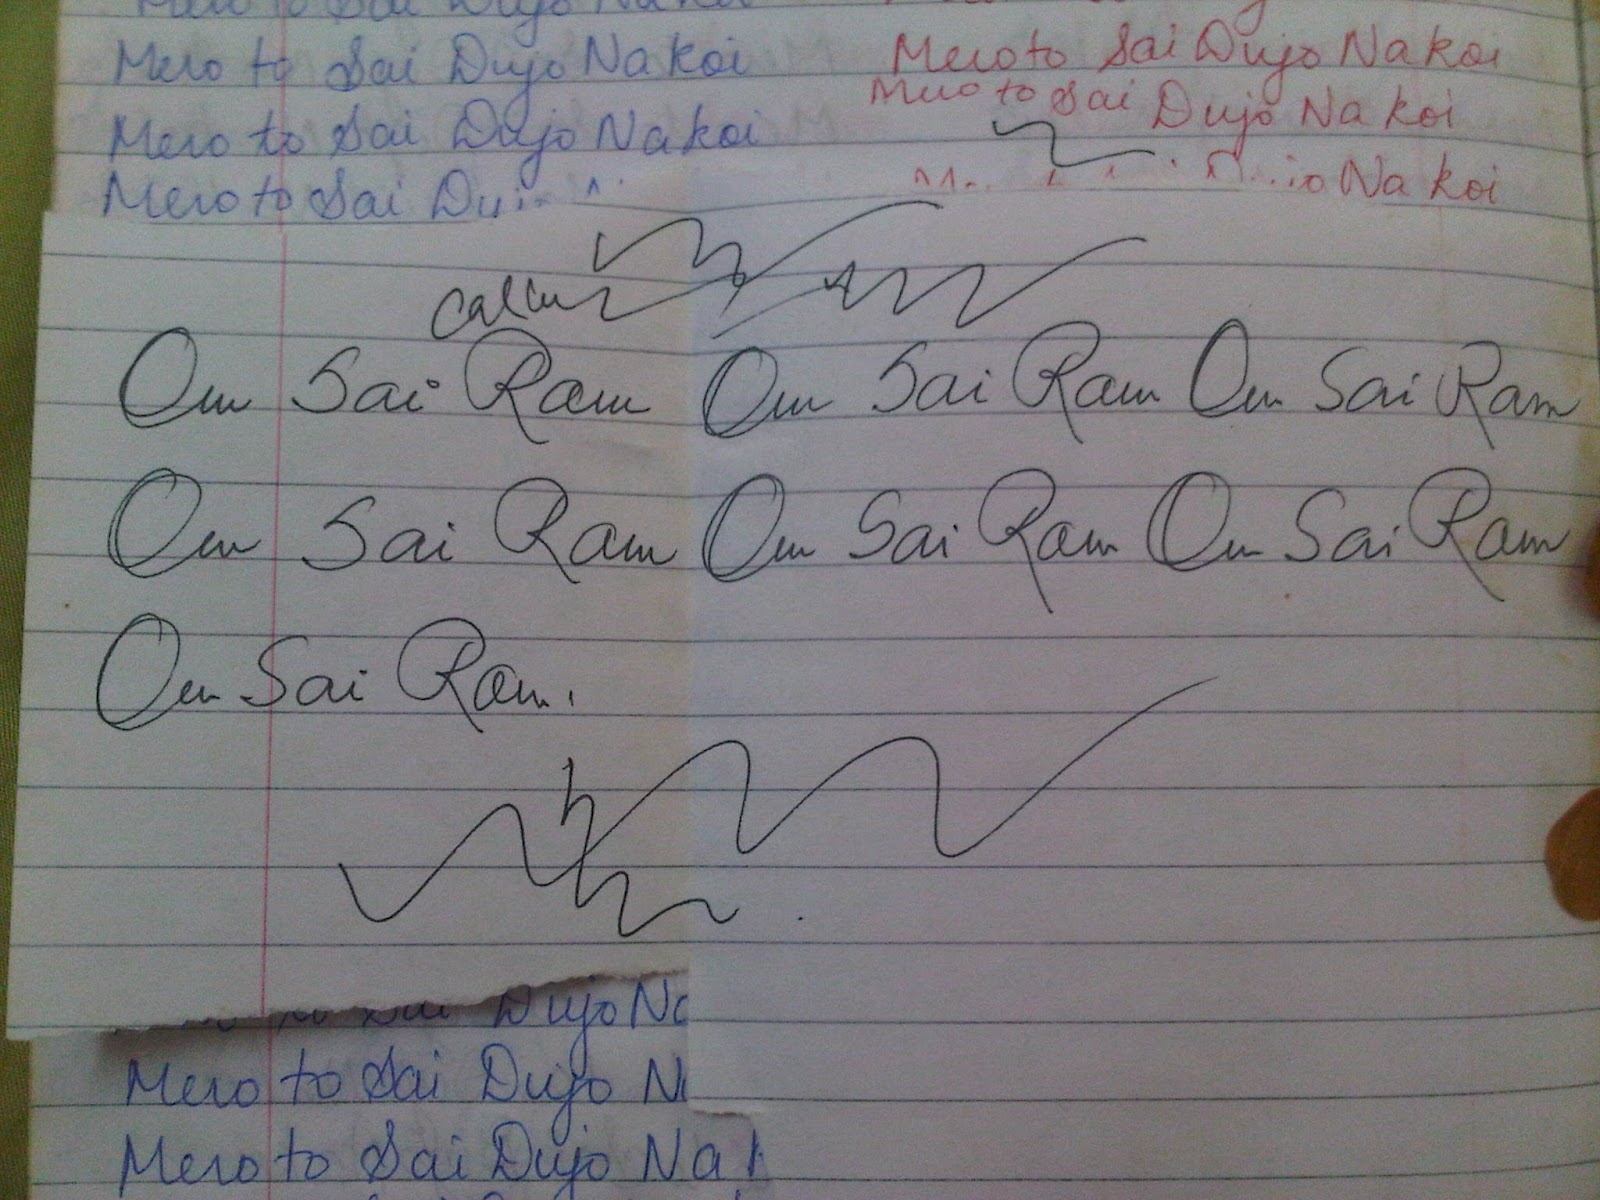 Mero to Sai Dujo Na Koi
Mero to Sai Dujo Na Koi
Mero to Sai Dujo Na Koi
Mero to Sai Dujo Na Koi
Mero to Sai
Na Koi
Om Sai Ram Om Sai Ram Om Sai Ram
Om Sai Ram Om Sai Ram Om Sai Ram
Om Sai Ram.
Sai Dujo Na
Mero to Sai Dujo Na
Mero to Sai Dujo Na